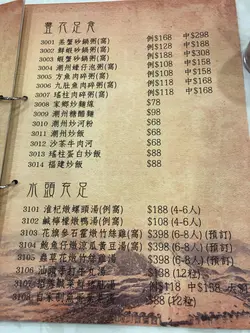 豐衣足食
3001 蒸蟹砂鍋粥(窩) 例$168 中$298
3002 鮮蝦砂鍋粥(窩) 例$128 中$208
3003 蝦蟹砂鍋粥(窩) 例$158 中$288
3004 潮州蠔仔泡粥(窩) 例$108 中$188
3005 方魚肉碎粥(窩) 例$88 中$158
3006 九肚魚肉碎粥(窩) 例$118
3007 瑤柱肉碎粥(窩) 例$108
3008 家鄉炒麵線 $78
3009 潮州糖醋麵
3010 潮州炒河粉 $68
3011 潮州炒飯 $68
3012 沙茶牛肉河 $68
3013 瑤柱蛋白炒飯
3014 福建炒飯 $88
水頭充足
3101 淮杞燉螺頭湯(例窩) $188 (4-6人)
3102 鹹檸檬燉鴨湯(例窩) $108 (4人)
3103 花旗參石靈燉竹絲雞(窩) $398 (6-8人) (預訂)
3104 鮑魚仔燉涼瓜黃豆湯(窩) $398 (6-8人) (預訂)
3105 蟲草花燉竹絲雞(窩) $398 (6-8人) (預訂)
3106 $138 (12粒)
3107 例$118 中$158
3108 $88 (12粒)